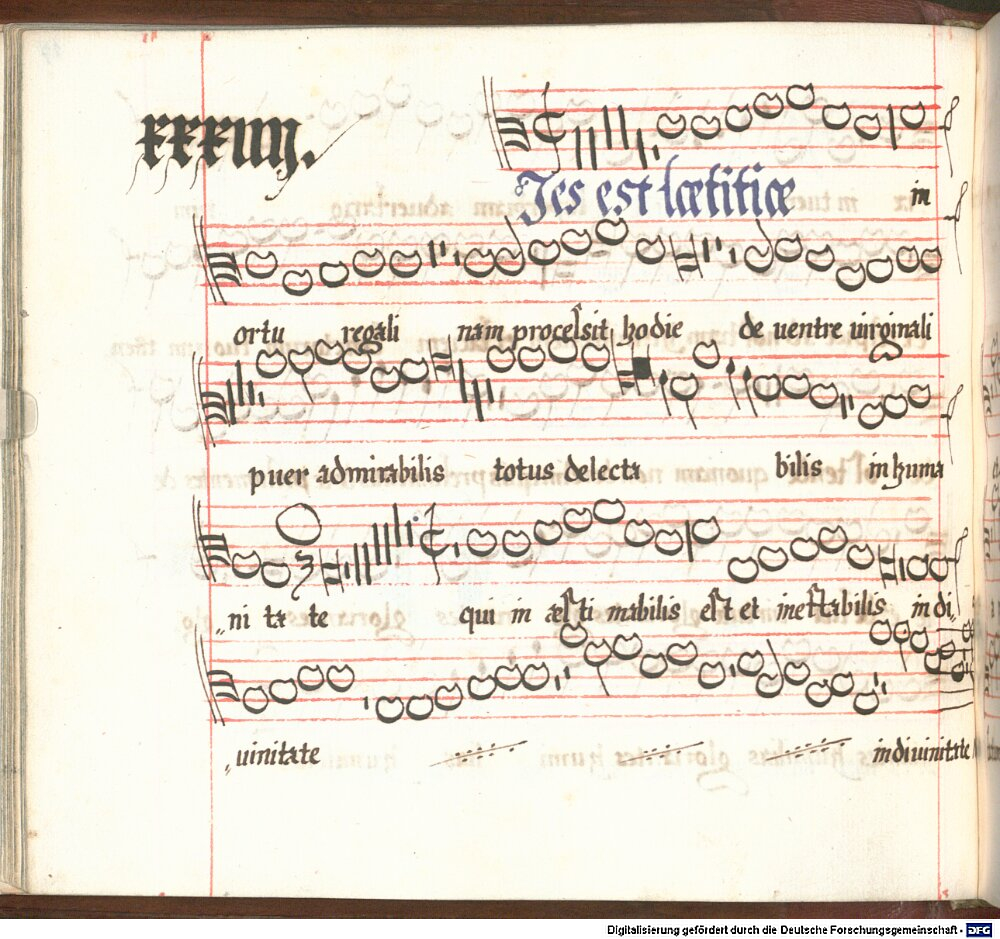 xxxiiij.
Ies est lætitiæ in
ortu regali nam procelsit hodie de uentre uirginali
puer admirabilis totus delecta bilis in huma
ni ta te qui in æsti mabilis est et ineffabilis in di
uinitate in diuinitate
Digitalisierung gefördert durch die Deutsche Forschungsgemeinschaft - DFG